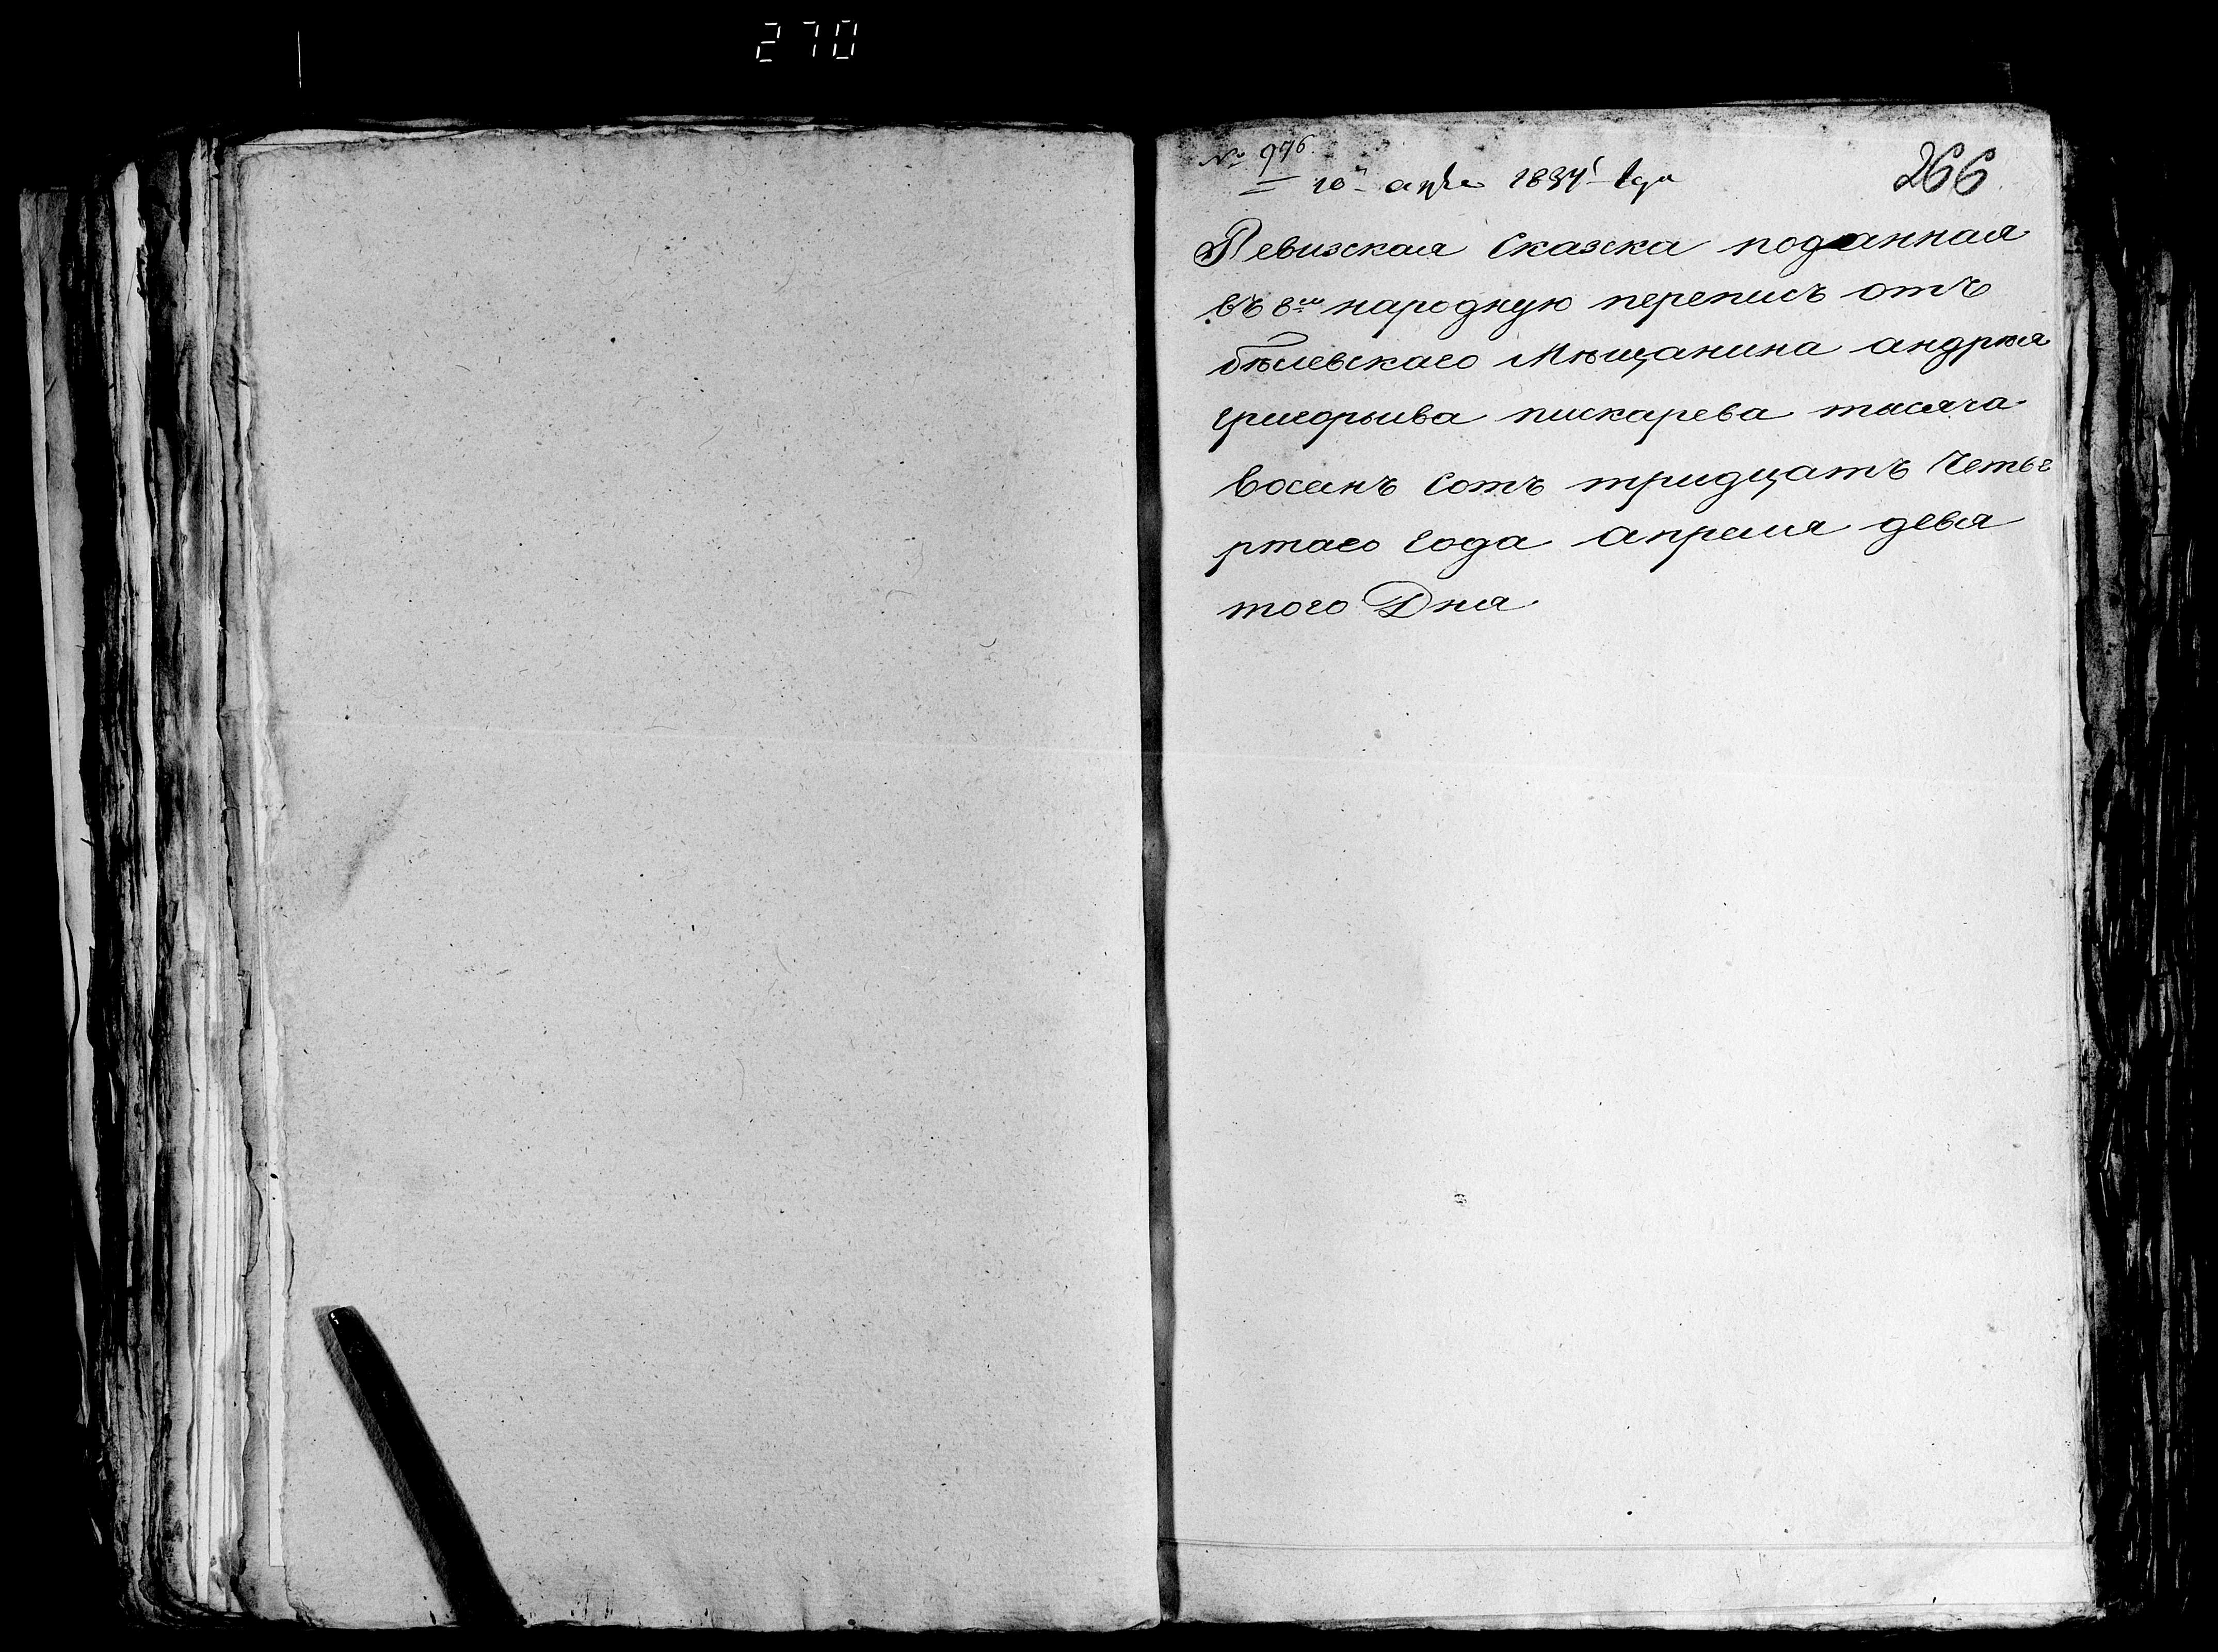 270
№ 976
10го апре 1834 года
266
Ревизская Сказка поданная
въ 8ю народную перепись отъ
бѣлевскаго Мѣщанина андрѣя
григорьива пискарева тысяча
восемъ сотъ тридцатъ Четье
ртаго года апреля девя
того Дня